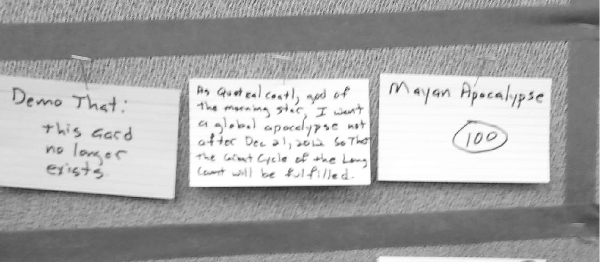 Demo That:
this card
no longer
exists.
As Quetzalcoatl, god of
the morning star, I want
a global apocalypse not
after Dec 21, 2012 So That
the Great Cycle of the Long
Count will be fulfilled.
Mayan Apocalypse
100